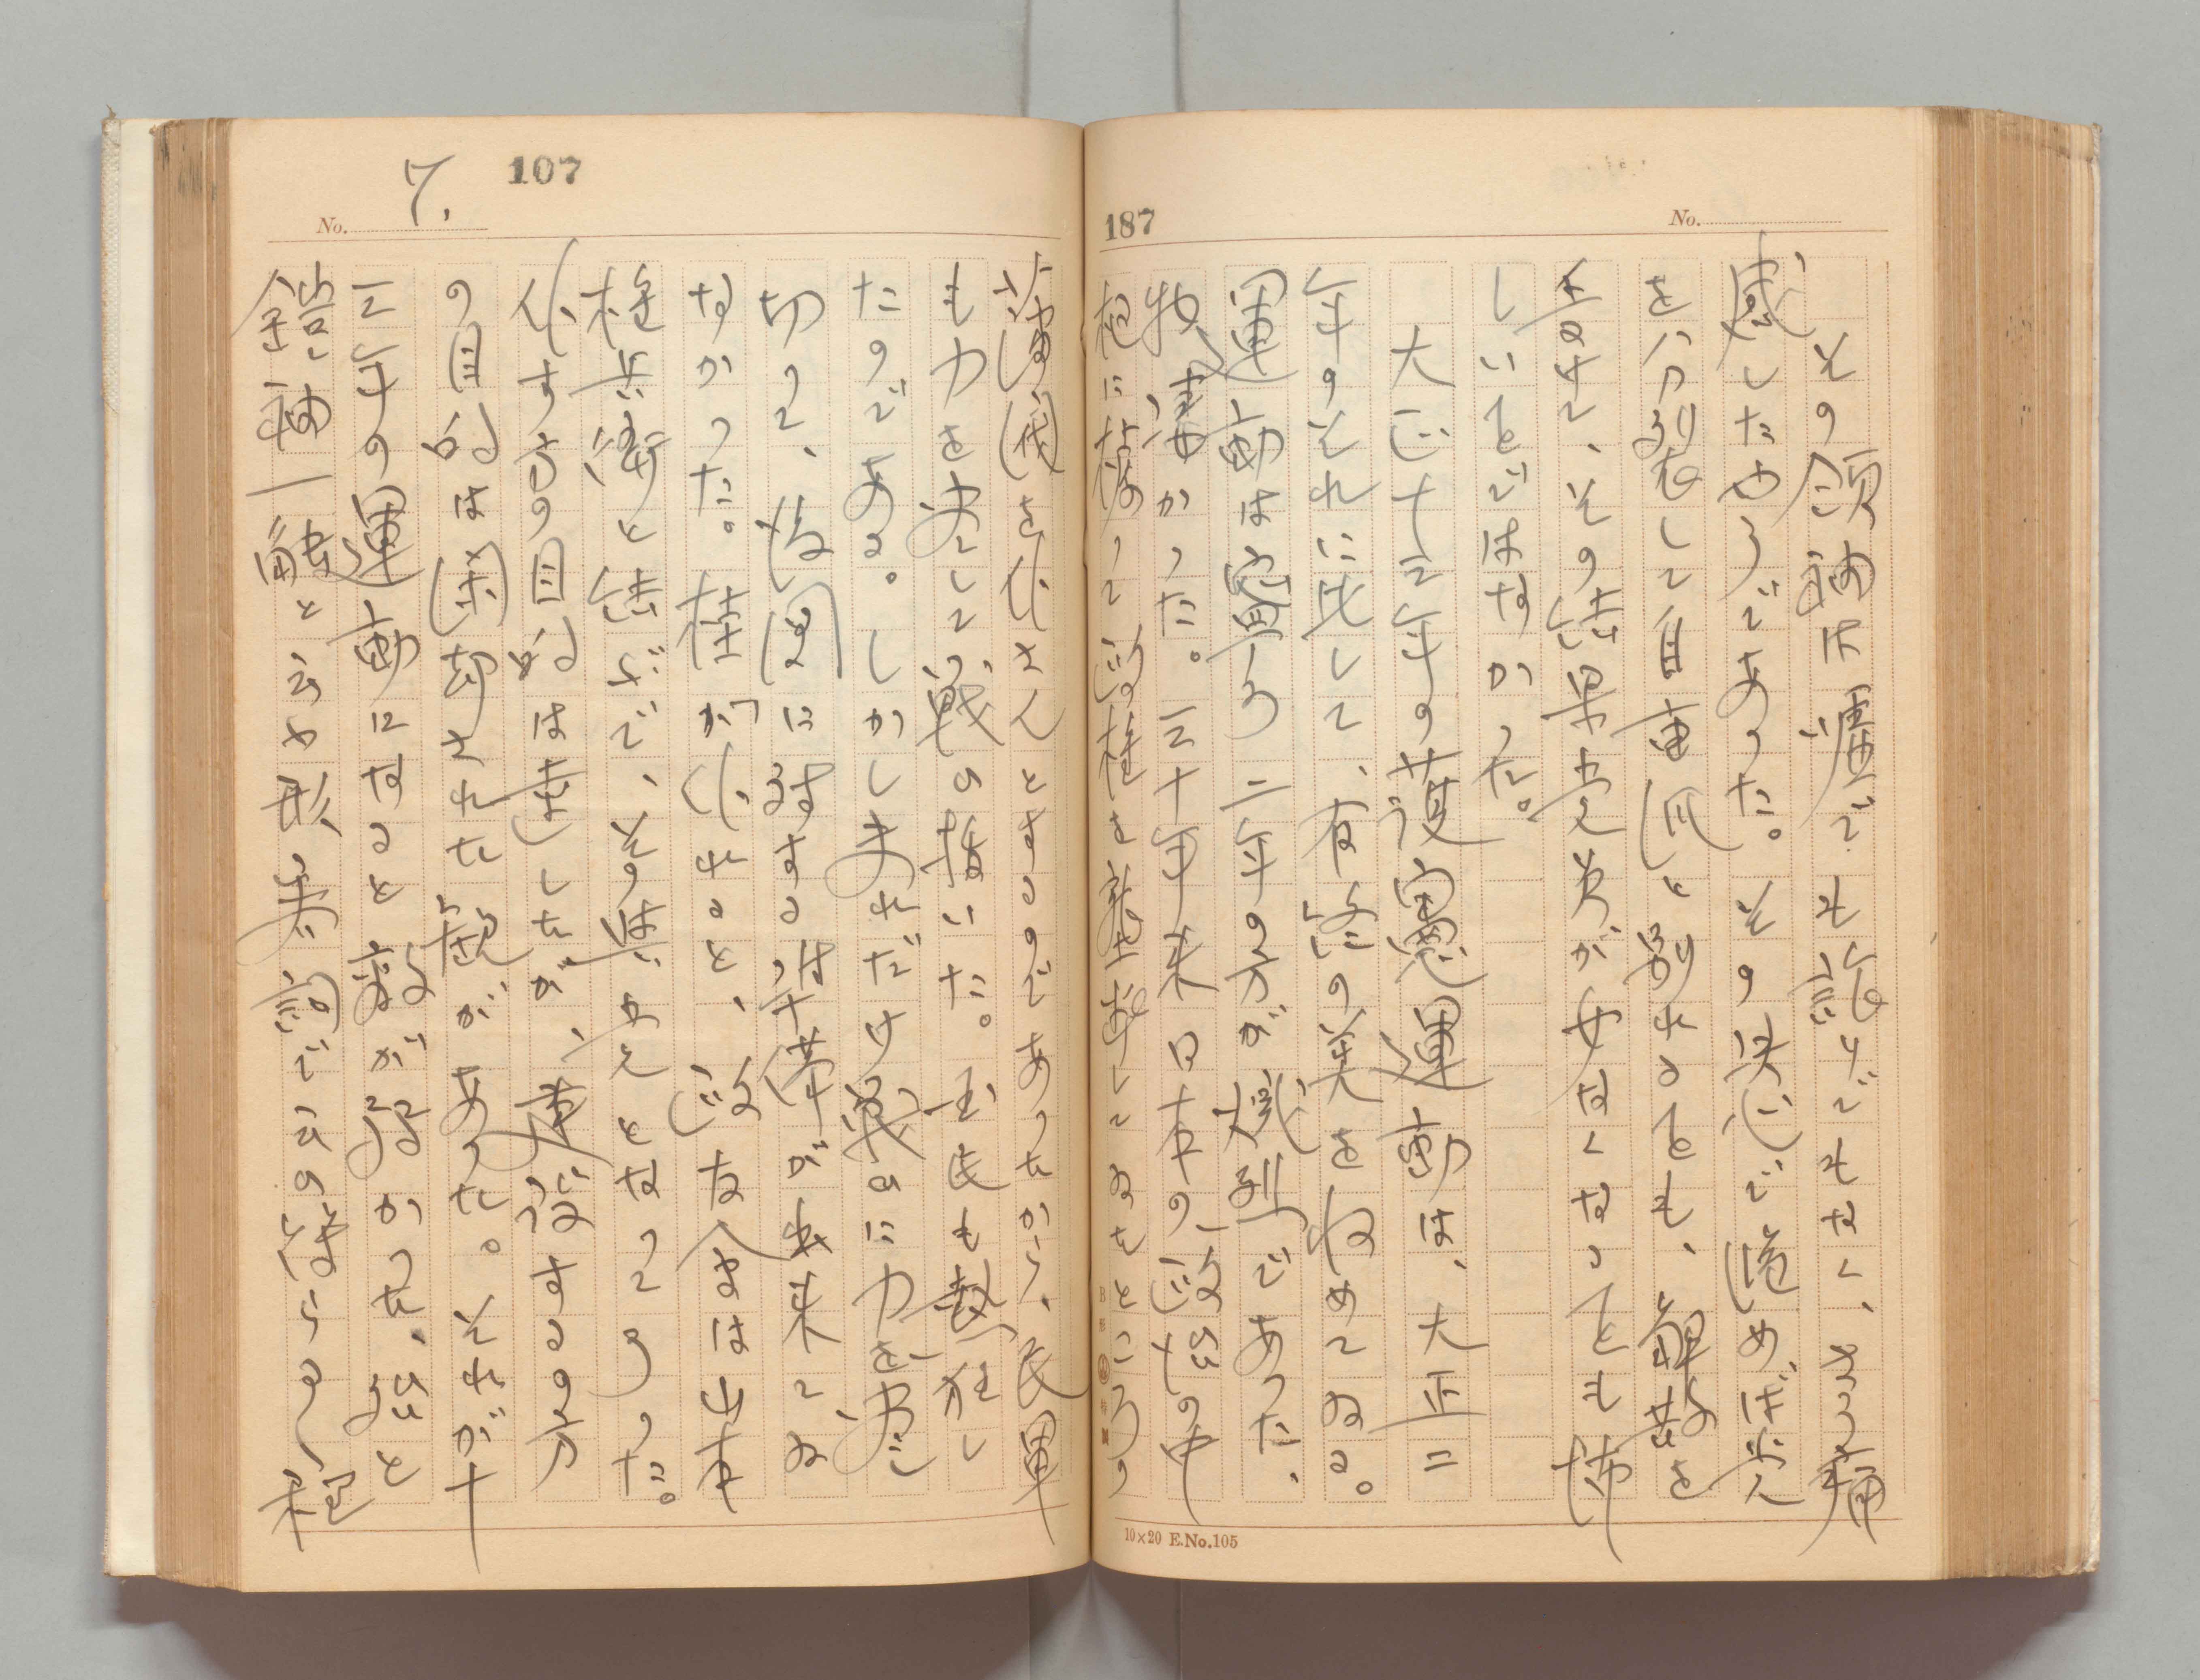 その領袖は嘘でも
感したやうであつた。その決心で進めば党
を分列をして自由派と別れるとも、
その結果党員が少なくなつても怖
しいことではなかつた。
大正十三年の護憲運動は、大正二
年のそれに比して、有終の美をおさめてゐる。
運動は寧ろ二年の方が熾烈であつた、
物凄かつた。三十年来日本の政治の中
枢に蟠つて政権を壟断してゐたところの
187
No.
10×20 E.No.105
107
No. 7.
藩閥を仆さんとするのであつたから、民軍
も力を尽して戦ひ抜いた。国民も熱狂し
たのである。しかしそれだけ戦ひに力を尽し
切つて、後図に対する準備が出来てゐ
なかつた。桂が仆れると、政友会は山本
権兵衛と結んで、その与党となつてしまつた。
仆す方の目的は達したが、建設するの方
の目的は閑却された観があつた。それが十
三年の運動になると敵が弱かつた、弱いと
鎧袖一触と云ふ形容詞で云ひ得らるゝ程